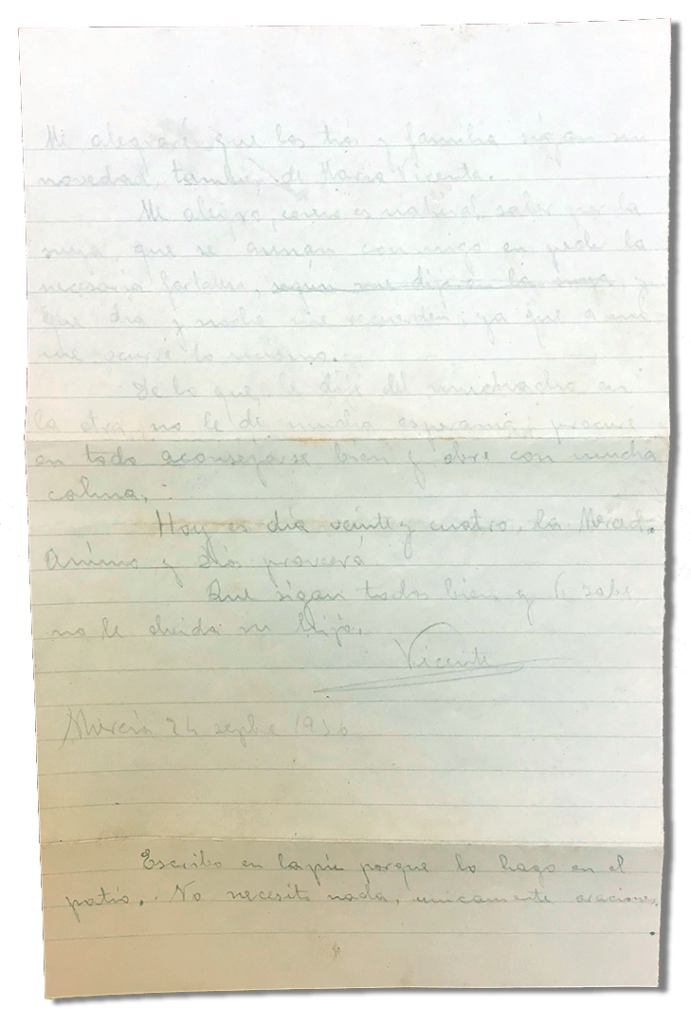 Me alegraré que los tíos y familia sigan sin
novedad, también de María Vicenta.
Me alegro, como es natural, saber por la
suya, que se aunan conmigo en pedir la
necesaria fortaleza, según me dije en la suya, y
que día y noche me recuerden, ya que a mi
me ocurre lo mismo.
De lo que le dije del muchacho en
la otra, no le dé mucha esperanza, procure
en todo aconsejarse bien y obre con mucha
calma.
Hoy es día veinte y cuatro, La Merced.
Animo y Dios proveerá
Que sigan todos bien y Vd. sabe
no le olvida su hijo,
Vicente
Murcia 24 sepbre 1936
Escribo en lapiz porque lo hago en el
patio. No necesito nada, unicamente oraciones.